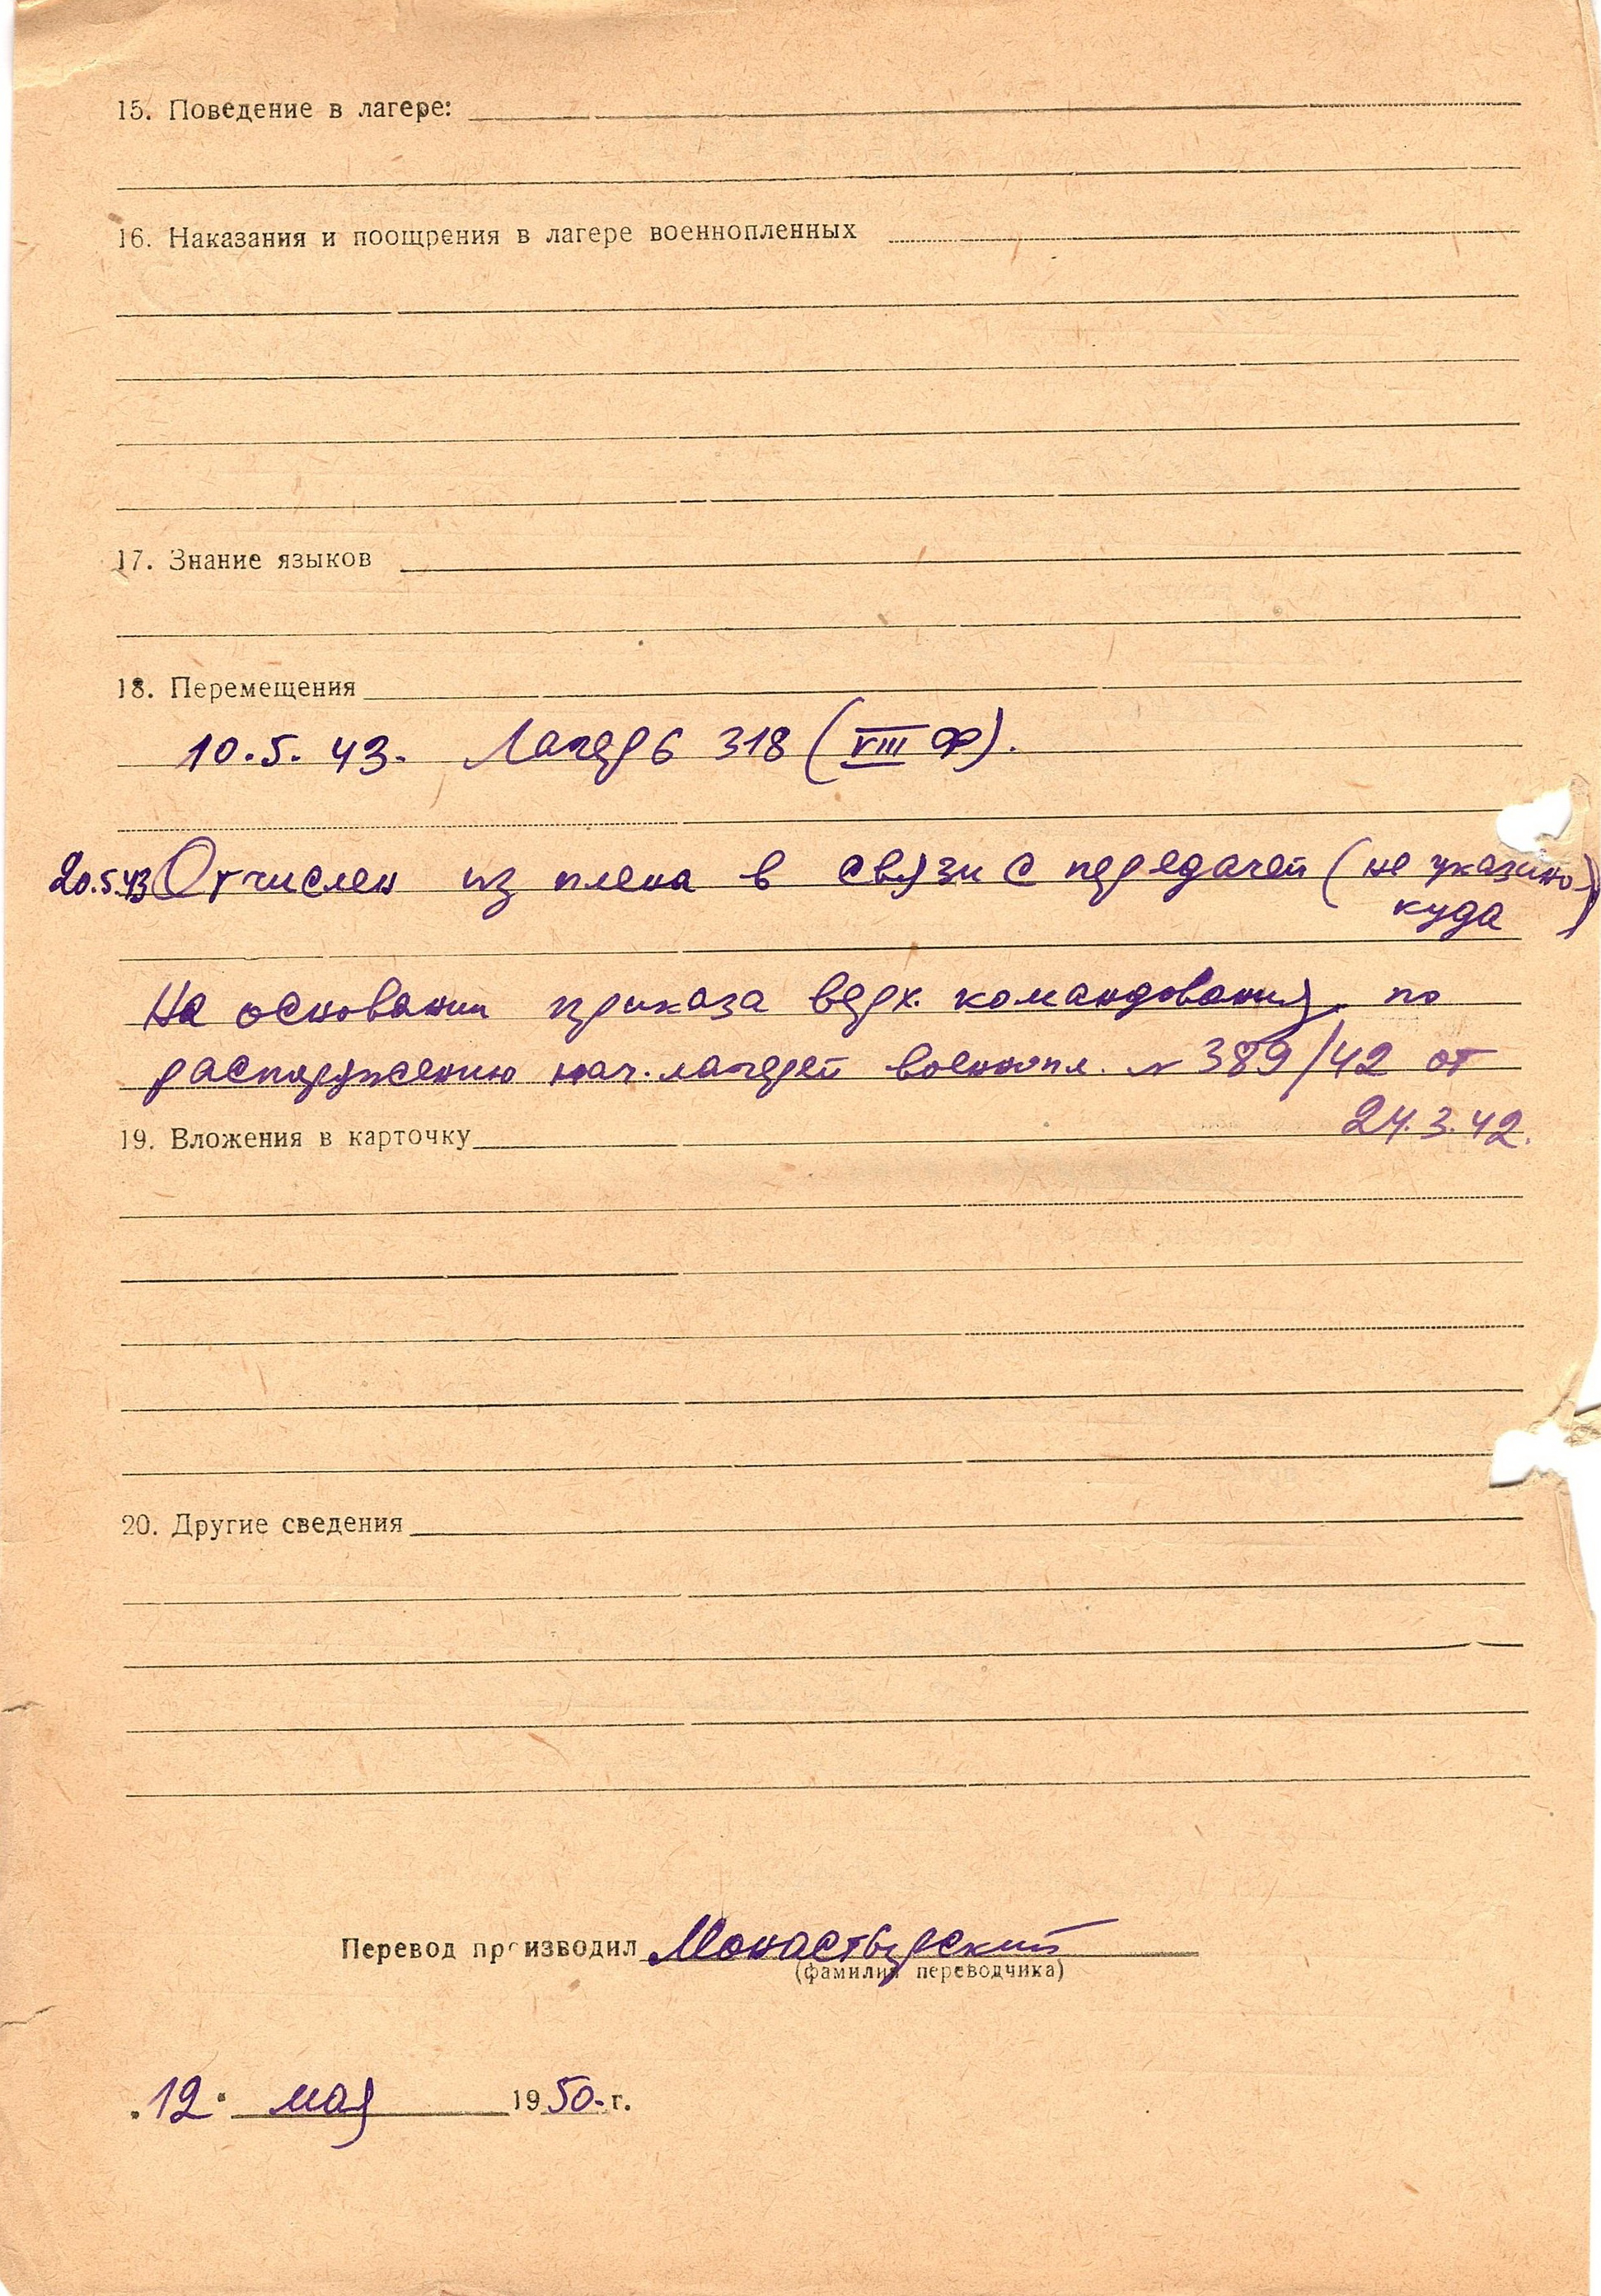 15. Поведение в лагере:
16. Наказания и поощрения в лагере военнопленных
17. Знание языков
18. Перемещения
10.5.43. Лагерь 318 (VIII Ф).
20.5.43 Отчислен из плена в связи с передачей (не указано
куда)
На основании приказа верх. командования, по
распоряжению нач. лагерей военнопл. № 389/42 от
24.3.42.
19. Вложения в карточку
20. Другие сведения
Перевод производил Монастырский
(фамилия переводчика)
"12" мая 1950 г.